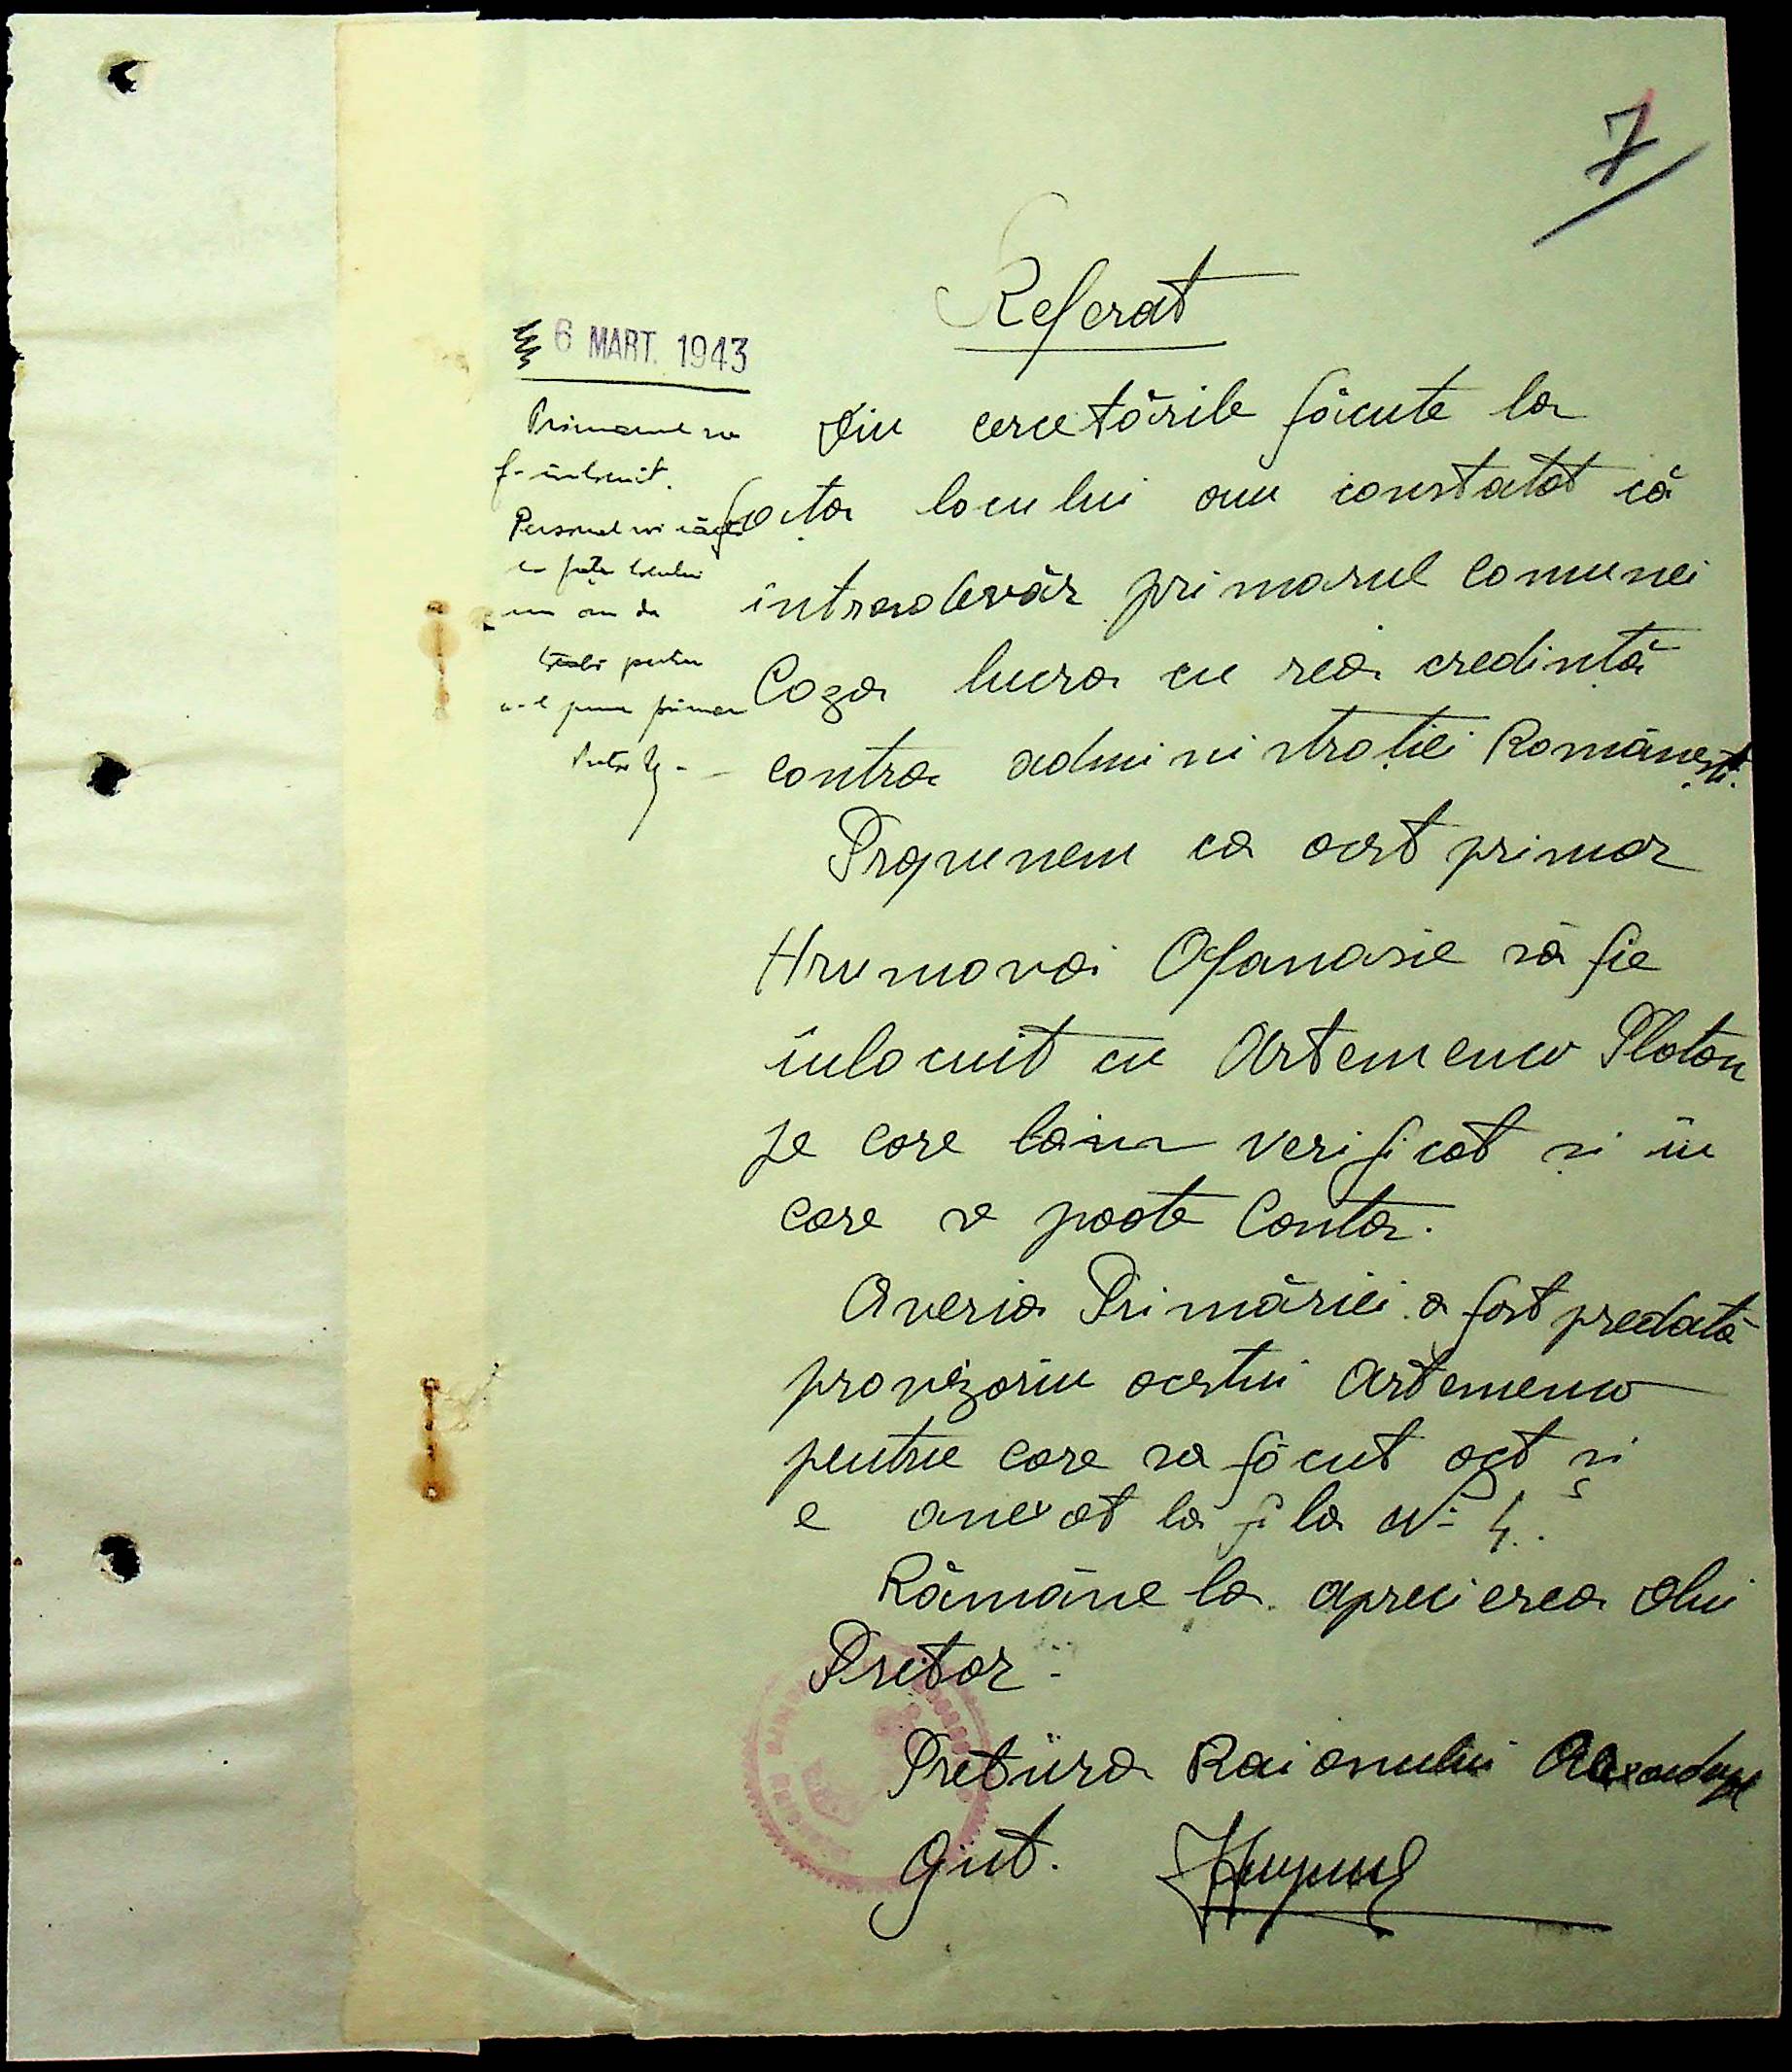 7
Referat
6 MART. 1943
Primarul va
f. înlocuit.
Personal voi
la fața locului
pentru
a-l pune primar
Pretor
Din cercetările făcute la
fața locului am constatat că
intradevăr primarul comunei
Coza lucra cu rea credință
contra administrației Românești.
Propunem ca acest primar
Hrumovoi Afanasie să fie
înlocuit cu Artemenco Platon
pe care lam verificat și în
care se poate Conta.
Averia Primăriei a fost predată
provizoriu acestui Artemenco
pentru care sa făcut act și
e anexat la fila No 4.
Rămâne la aprecierea Dlui
Pretor.
Pretura Raionului
Ajut.